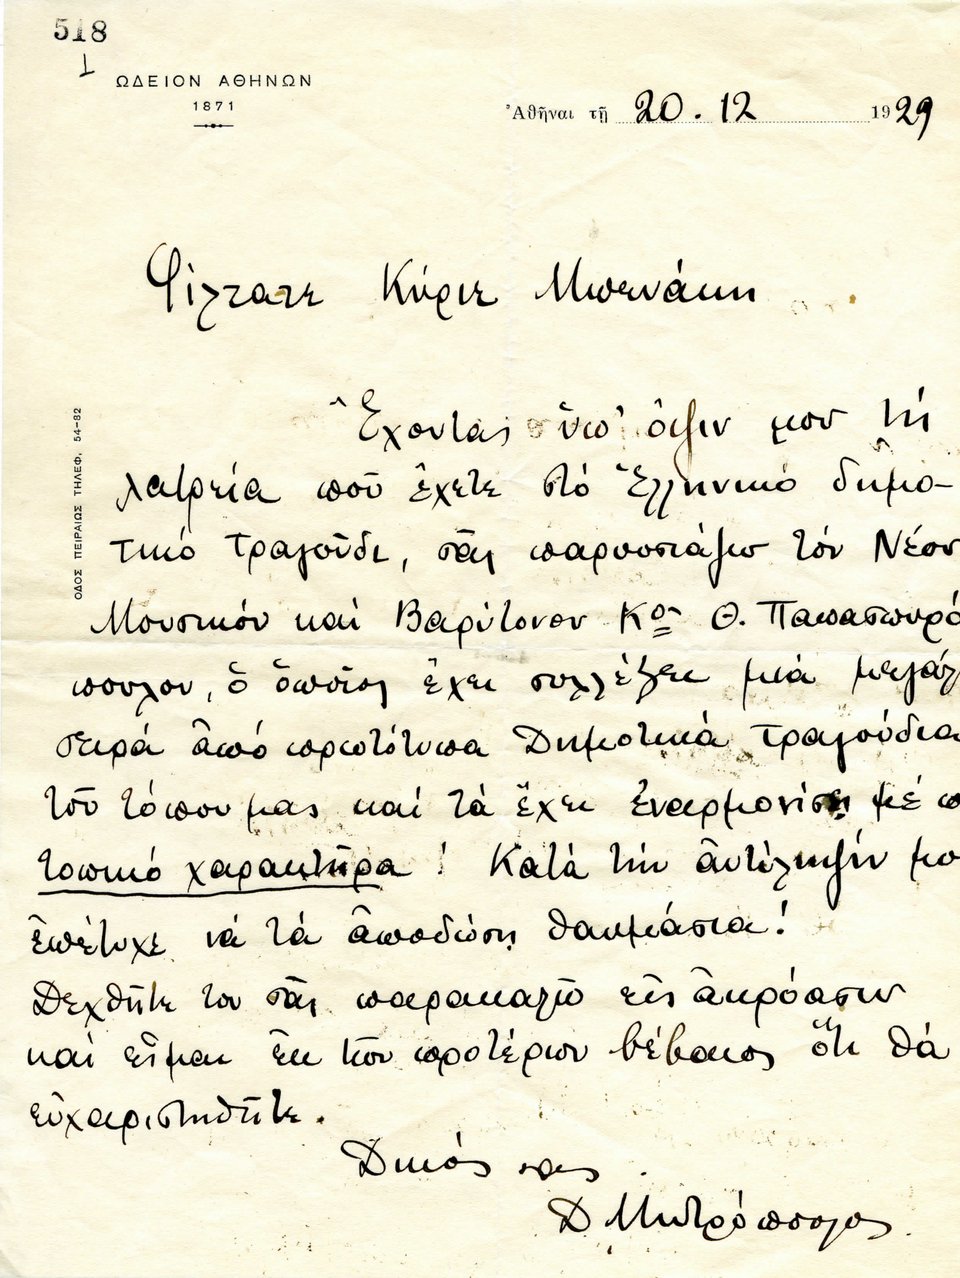 518
1
ΩΔΕΙΟΝ ΑΘΗΝΩΝ
1871
Ἀθῆναι τῇ 20.12 1929
ΟΔΟΣ ΠΕΙΡΑΙΩΣ ΤΗΛΕΦ. 54-82
Φίλτατε Κύριε Μπενάκη
Ἔχοντας ὑπ' ὄψιν μου τή
λατρεία ποῦ ἔχετε στό Ἑλληνικό δημο-
τικό τραγοῦδι, σᾶς παρουσιάζω τόν Νέον
Μουσικόν καί Βαρύτονον Κον Θ. Παπασπυρό
πουλον, ὁ ὁποῖος ἔχει συλλέξει μιά μεγάλ
σειρά ἀπό πρωτότυπα Δημοτικά τραγούδια
τοῦ τόπου μας καί τά ἔχει ἐναρμονίσει μέ π
τοπικό χαρακτῆρα! Κατά τήν ἀντίληψίν μο
ἐπέτυχε νά τά ἀποδώσῃ θαυμάσια!
Δεχθῆτε τον σᾶς παρακαλῶ εἰς ἀκρόασιν
καί εἶμαι ἐκ τῶν προτέρων βέβαιος ὅτι θά
εὐχαριστηθῆτε.
Δικός σας
Δ Μητρόπουλος